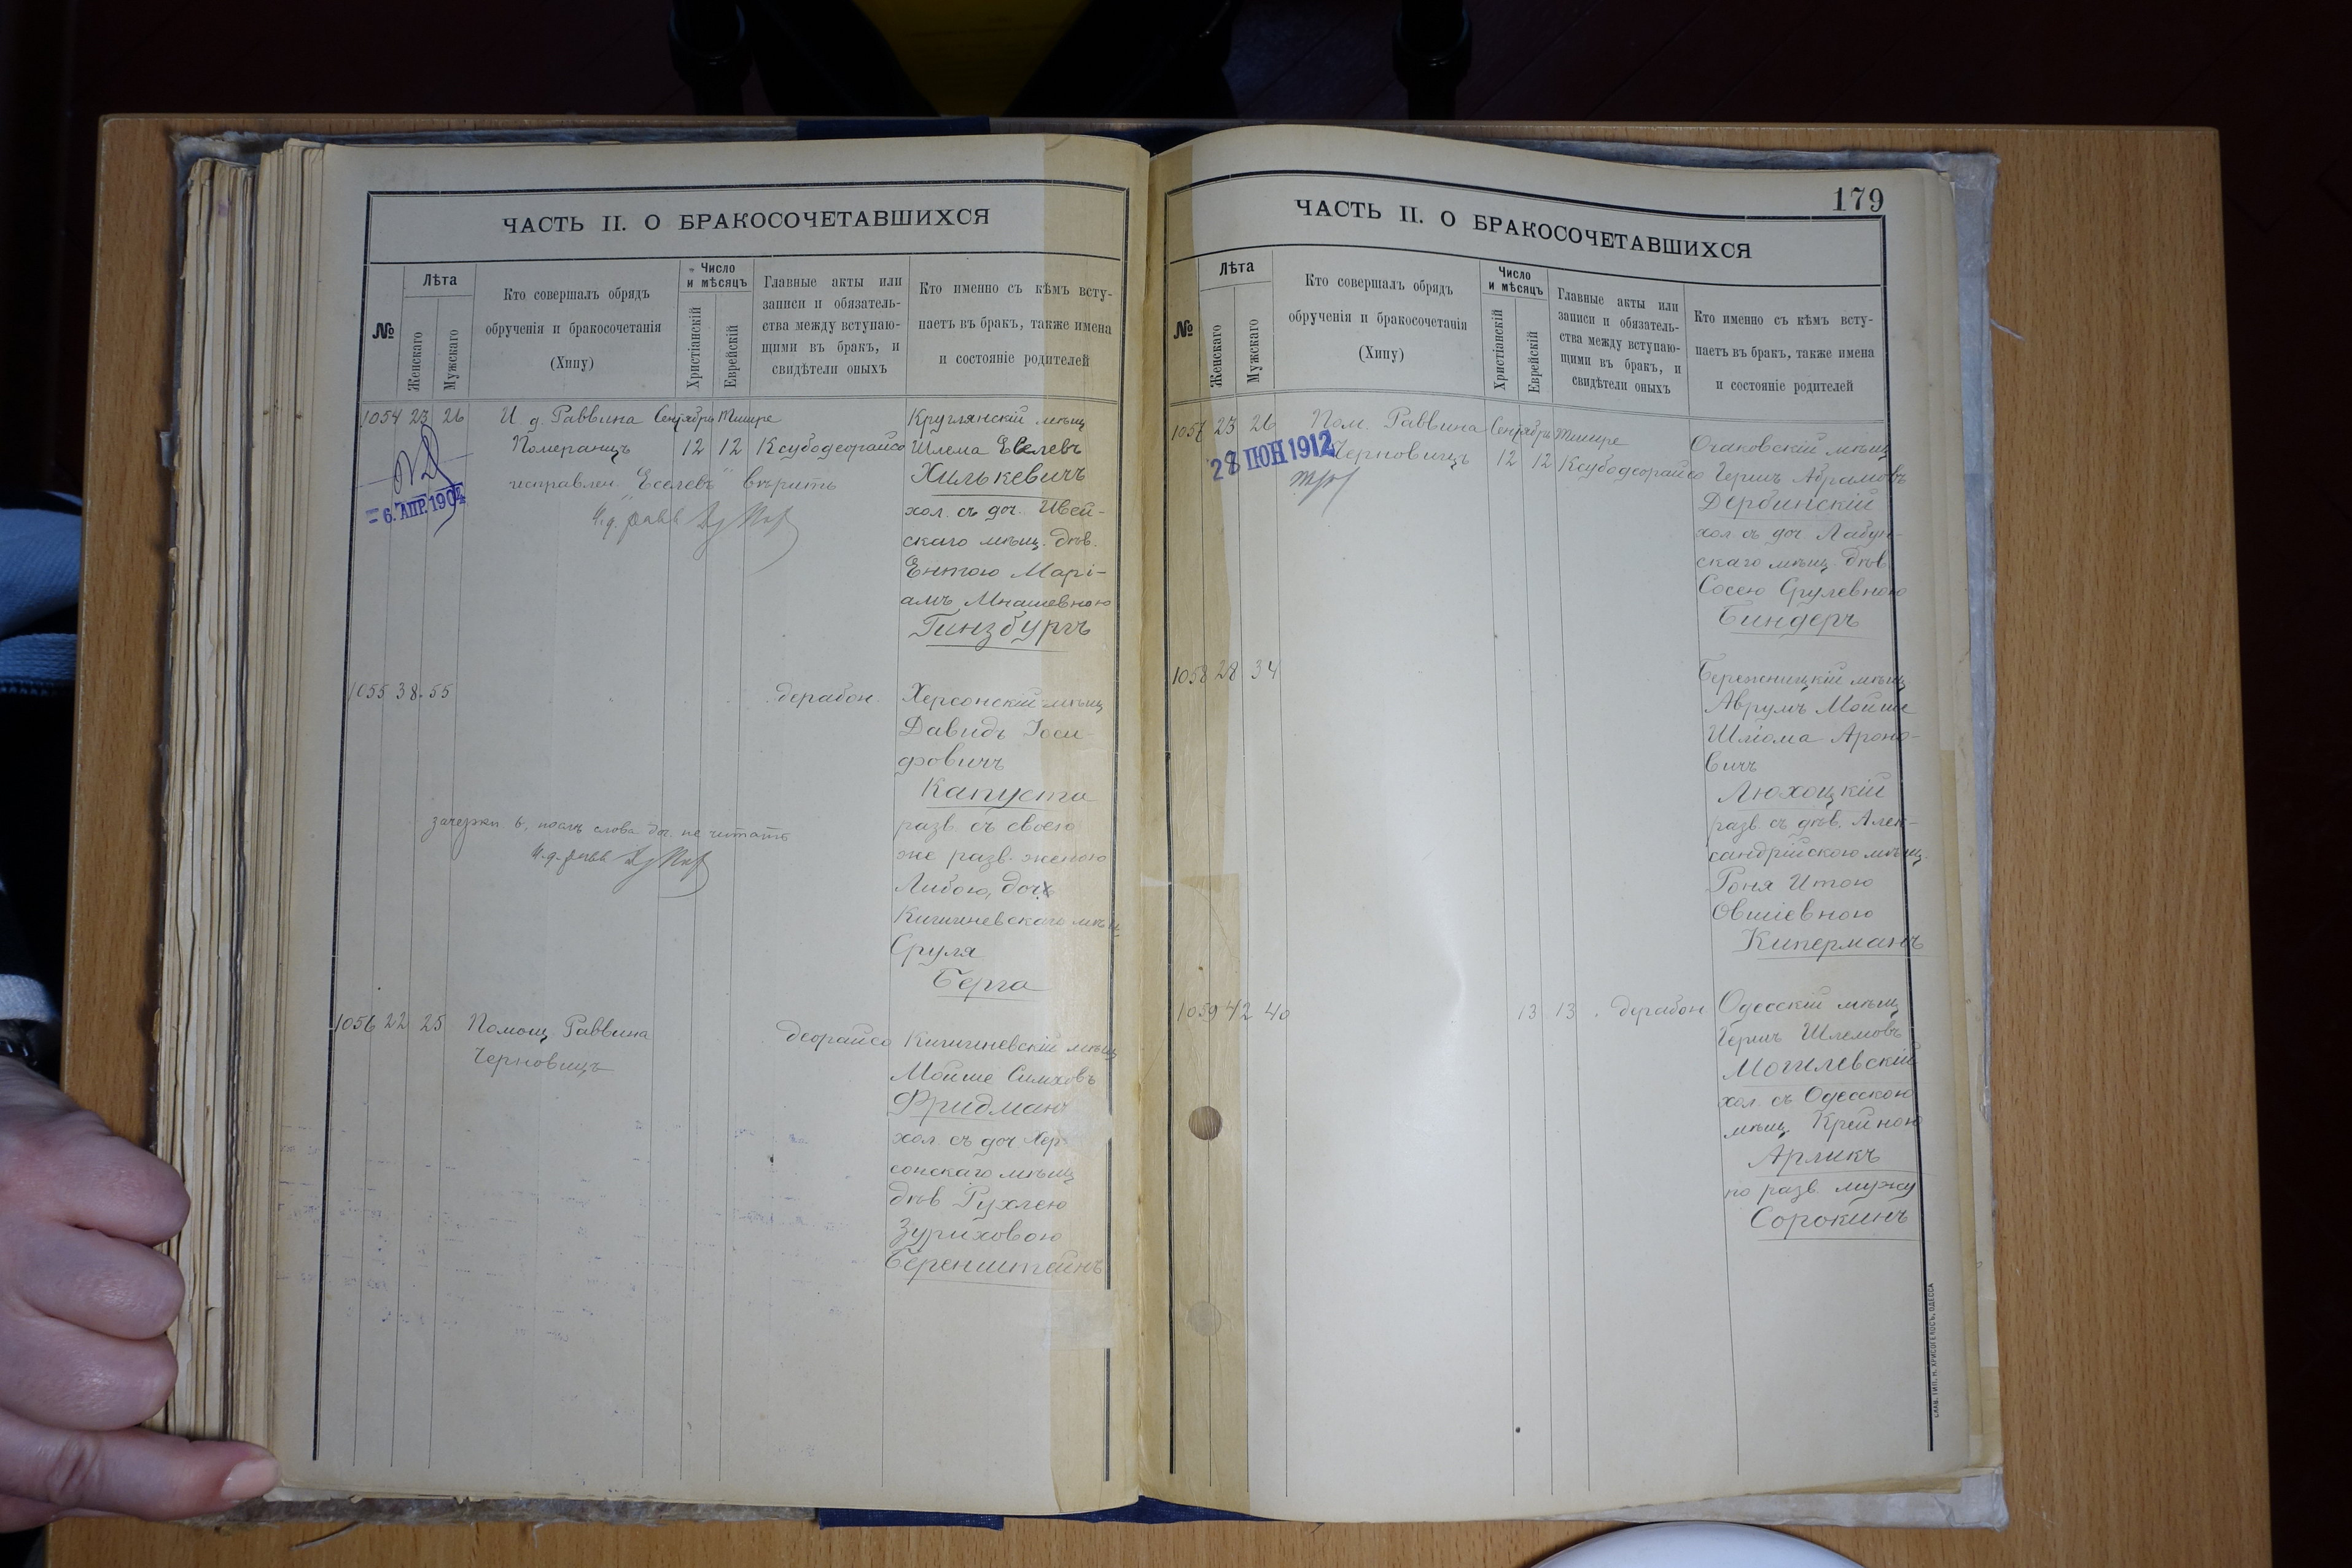 ЧАСТЬ II. О БРАКОСОЧЕТАВШИХСЯ
№
Лѣта
Женскаго
Мужскаго
Кто совершалъ обрядъ
обрученія и бракосочетанія
(Хипу)
Число
и мѣсяцъ
Христіанскій
Еврейскій
Главные акты или
записи и обязатель-
ства между вступаю-
щими въ бракъ, и
свидѣтели оныхъ
Кто именно съ кѣмъ всту-
паетъ въ бракъ, также имена
и состояніе родителей
1054 23 26 И. д. Раввина Сентябрь Тишре
Померанцъ 12 12 Ксубодеорайсо
исправлен. "Еселевъ" вѣрить
И. д. равв
6. АПР. 1904
Круглянскій мѣщ
Шлема Еселевъ
Хилькевичъ
хол. съ доч. Ивей-
скаго мѣщ. дѣв.
Ентою Марі-
амъ Мнашевною
Гинзбургъ
1055 38 55 дерабон.
Херсонскій мѣщ
Давидъ Іоси-
фовичъ
Капуста
разв. съ своею
же разв. женою
Либою, доч
Кишиневскаго мѣщ
Сруля
Берга
зачеркн. ь, послѣ слова доч. не читать
И. д. равв
1056 22 25 Помощ. Раввина
Черновицъ
деорайсо
Кишиневскій мѣщ
Мойше Симховъ
Фридманъ
хол. съ доч Хер-
сонскаго мѣщ
дѣв Рухлею
Зуриховою
Беренштейнъ
179
ЧАСТЬ II. О БРАКОСОЧЕТАВШИХСЯ
№
Лѣта
Женскаго
Мужскаго
Кто совершалъ обрядъ
обрученія и бракосочетанія
(Хипу)
Число
и мѣсяцъ
Христіанскій
Еврейскій
Главные акты или
записи и обязатель-
ства между вступаю-
щими въ бракъ, и
свидѣтели оныхъ
Кто именно съ кѣмъ всту-
паетъ въ бракъ, также имена
и состояніе родителей
1057 23 26 Пом. Раввина Сентябрь Тишре
Черновицъ 12 12 Ксубодеорайсо
28 ІЮН 1912
Очаковскій мѣщ
Гершъ Абрамовъ
Дербинскій
хол съ доч. Лабун-
скаго мѣщ. дѣв
Сосею Срулевною
Биндеръ
1058 28 34
Бережницкій мѣщ
Аврумъ Мойше
Шліома Ароно-
вичъ
Люхоцкій
разв. съ дѣв. Алек-
сандрійскою мѣщ.
Роня Итою
Овшіевною
Киперманъ
1059 42 40 13 13 дерабон
Одесскій мѣщ
Гершъ Шлемовъ
Могилевскій
хол. съ Одесскою
мѣщ Крейною
Арликъ
по разв. мужу
Сорокинъ
СЛАВ. ТИП. Н. ХРИСОГЕЛОСЪ, ОДЕССА